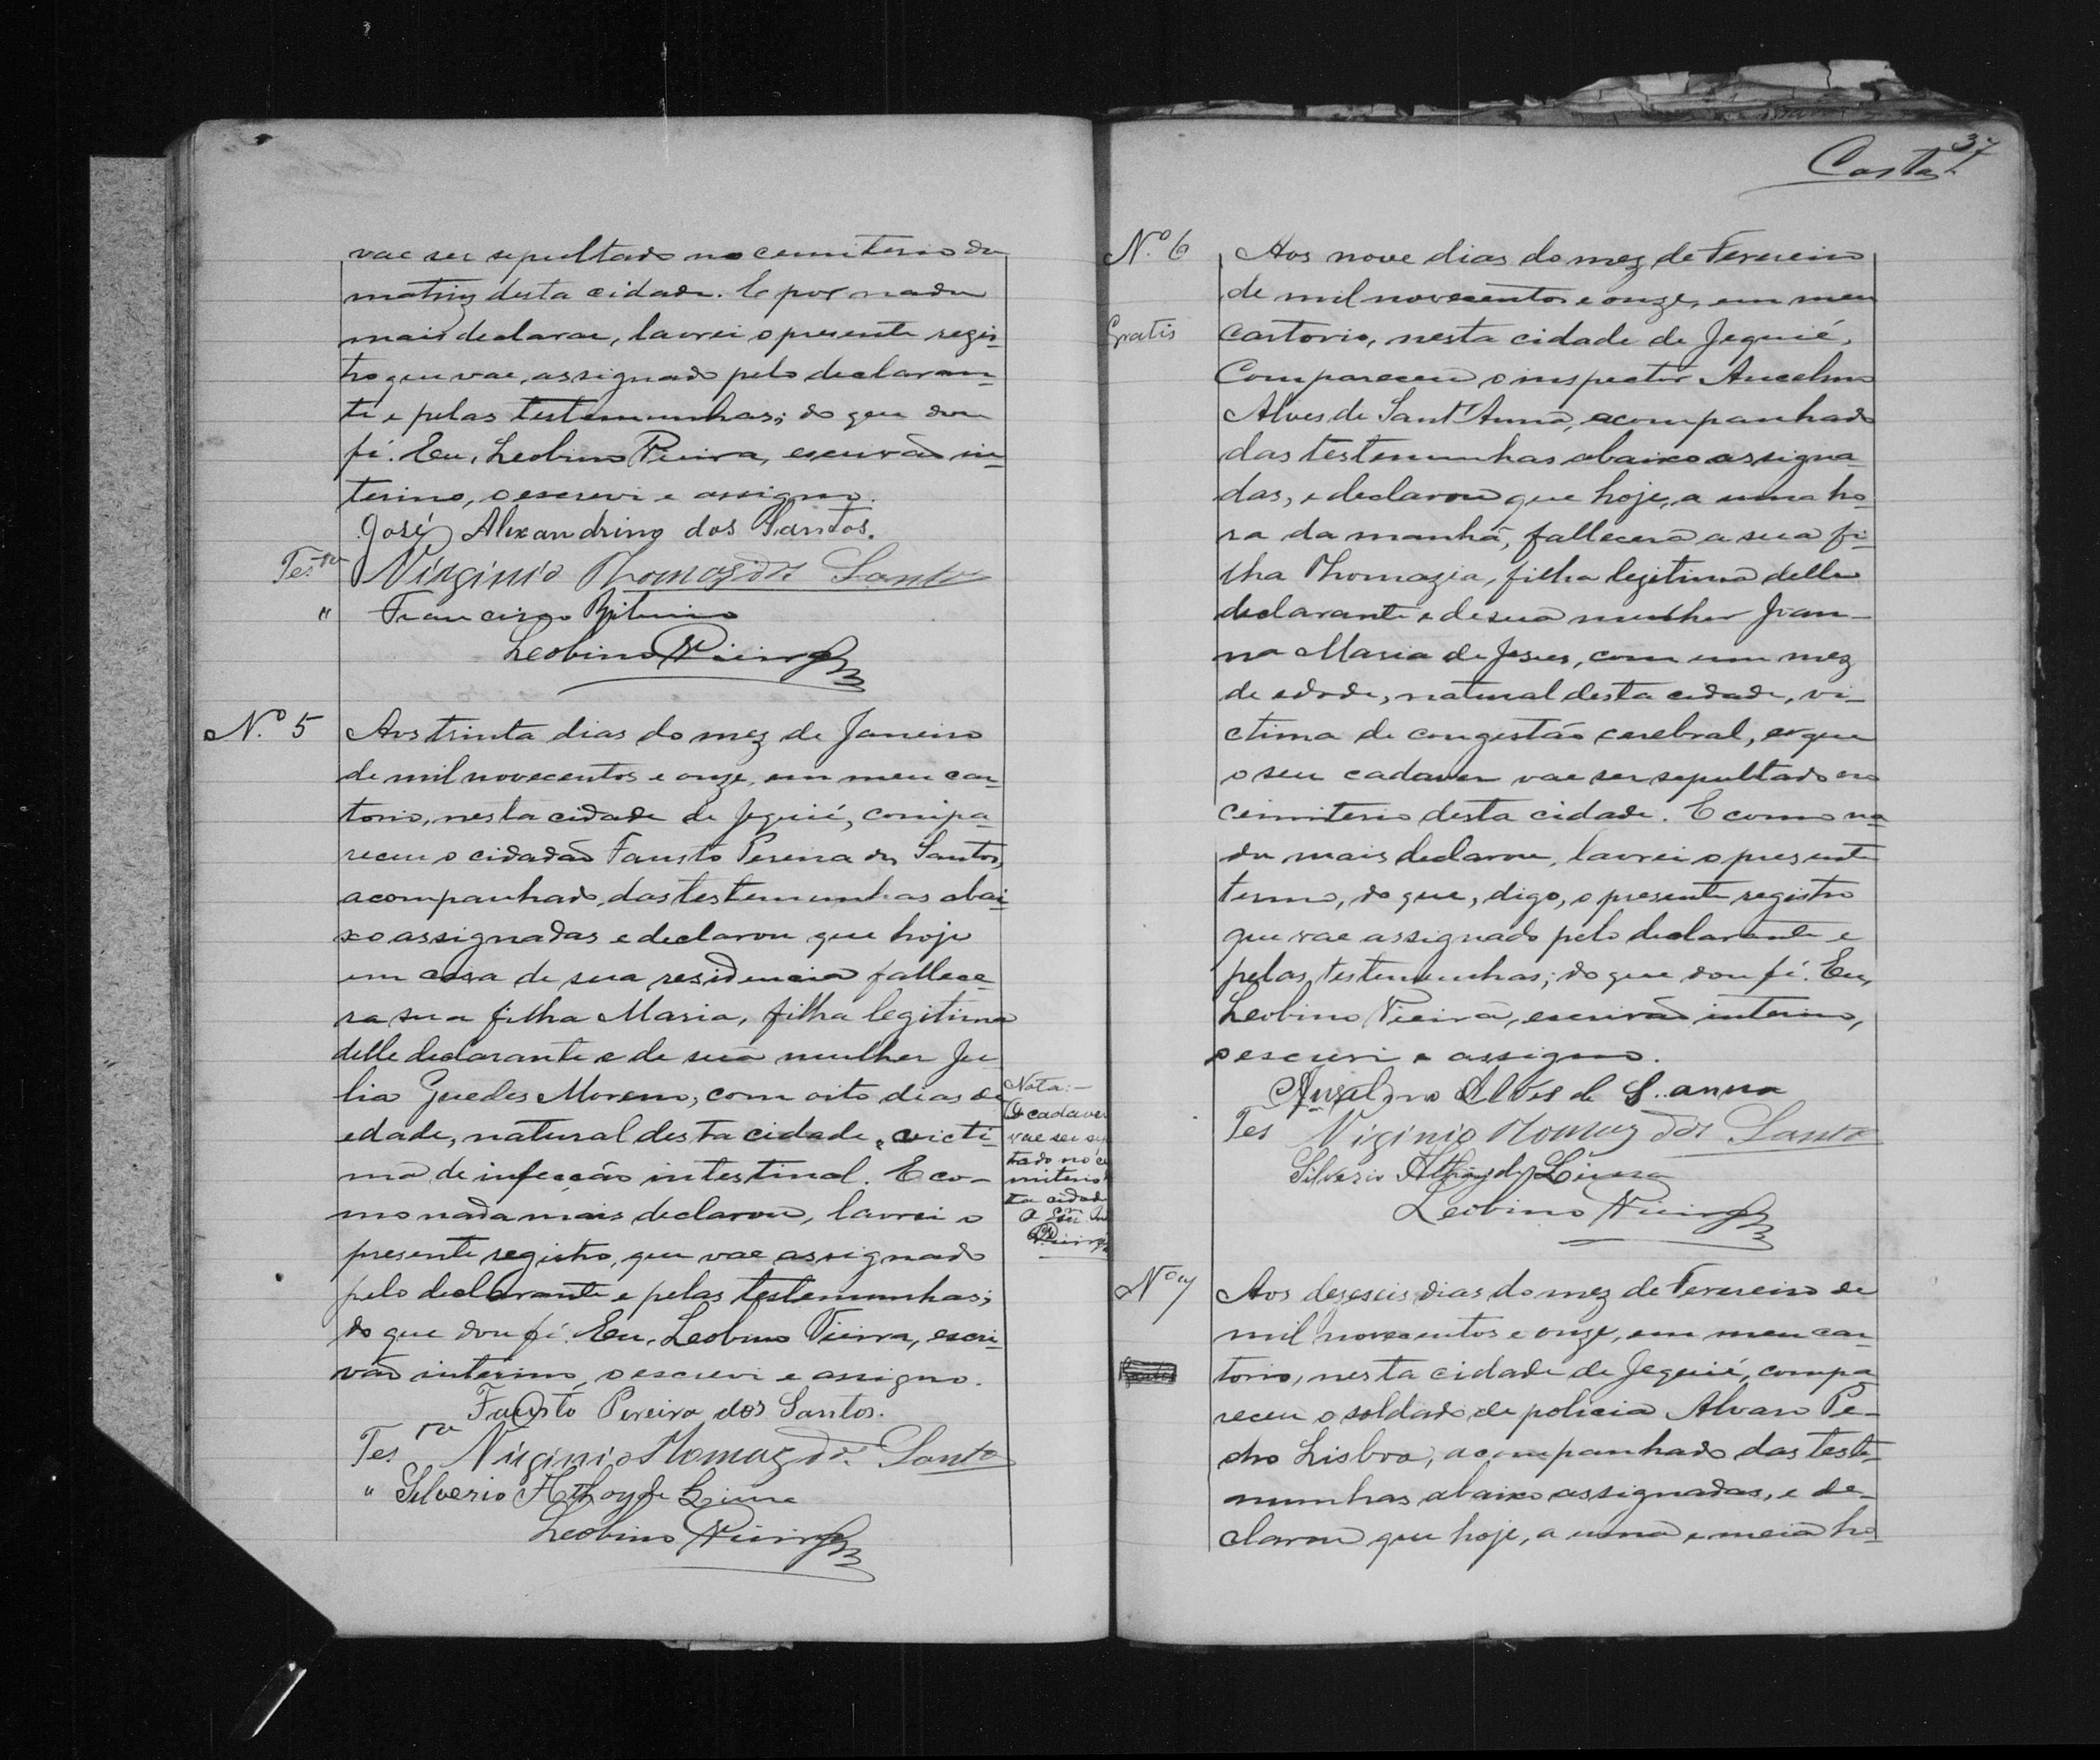 vae ser sepultado no cemiterio da
matriz desta cidade. E por nada
mais declarar, lavrei o presente regis-
tro que vae assignado pelo declaran-
te e pelas testemunhas; do que dou
fé. Eu, Leobino Vieira, escrivão in-
terino, o escrevi e assigno.
José Alexandrino dos Santos.
Tes.ras Virginio Thomaz dos Santos
" Francisco
Leobino Vieira
N.º 5
Aos trinta dias do mez de Janeiro
de mil novecentos e onze, em meu car-
torio, nesta cidade de Jequié, compa-
receu o cidadão Fausto Pereira dos Santos,
acompanhado das testemunhas abai-
xo assignadas e declarou que hoje
em casa de sua residencia fallece-
ra sua filha Maria, filha legitima
delle declarante e de sua mulher Ju-
lia Guedes Moreno, com oito dias de
edade, natural desta cidade, victi-
ma de infecção intestinal. E co-
mo nada mais declarou, lavrei o
presente registro, que vae assignado
pelo declarante e pelas testemunhas;
do que dou fé. Eu, Leobino Vieira, escri-
vão interino, o escrevi e assigno.
Fausto Pereira dos Santos.
Tes.ras Virginio Thomaz dos Santos
" Silverio Athayde Lima
Leobino Vieira
Nota:-
O cadaver
vae ser sep
tado no ce
miterio
ta cidade
O
Vieira
37
Costa
N.º 6
Gratis
Aos nove dias do mez de Fevereiro
de mil novecentos e onze, em meu
cartorio, nesta cidade de Jequié,
Compareceu o inspector Ancelmo
Alves de Sant'Anna, acompanhado
das testemunhas abaixo assigna-
das, e declarou que hoje, a uma ho-
ra da manhã, fallecera a sua fi-
lha Thomazia, filha legitima delle
declarante e de sua mulher Joan-
na Maria de Jesus, com um mez
de edade, natural desta cidade, vi-
ctima de congestão cerebral, e que
o seu cadaver vae ser sepultado no
cemiterio desta cidade. E como na-
da mais declarou, lavrei o presente
termo, do que, digo, o presente registro
que vae assignado pelo declarante e
pelas testemunhas; do que dou fé. Eu,
Leobino Vieira, escrivão interino,
o escrevi e assigno.
Anselmo Alves de S. anna
Tes Virginio Thomaz dos Santos
Silverio Athayde Lima
Leobino Vieira
Nº 7
Aos deseseis dias do mez de Fevereiro de
mil novecentos e onze, em meu car-
torio, nesta cidade de Jequié, compa-
receu o soldado de policia Alvaro Pe-
dro Lisboa, acompanhado das teste-
munhas abaixo assignadas, e de-
clarou que hoje, a uma e meia ho-